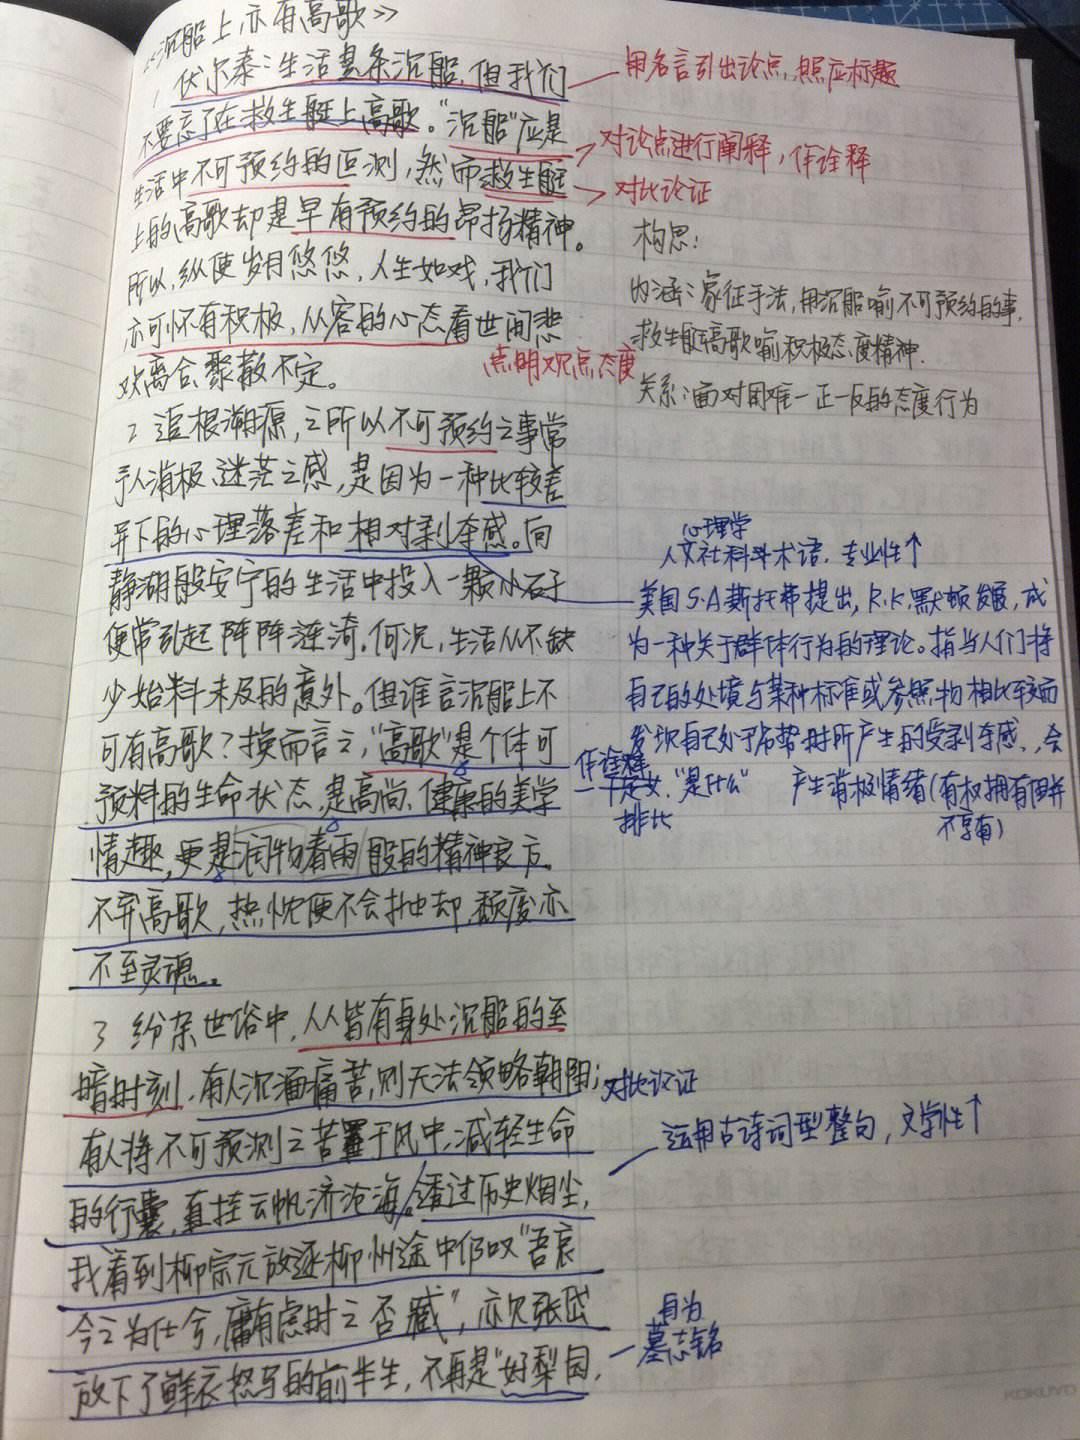 《沉船上,亦有高歌》
1 伏尔泰:生活是条沉船,但我们
不要忘了在救生艇上高歌。"沉船"应是
生活中不可预约的叵测,然而救生艇
上的高歌却是早有预约的昂扬精神。
所以,纵使岁月悠悠,人生如戏,我们
亦可怀有积极、从容的心态看世间悲
欢离合、聚散不定。
用名言引出论点,照应标题
对论点进行阐释,作诠释
对比论证
点明观点态度
构思:
内涵:象征手法,用沉船喻不可预约的事,
救生艇高歌喻积极态度精神.
关系:面对困难一正一反的态度行为
2 追根溯源,之所以不可预约之事常
予人消极、迷茫之感,是因为一种比较差
异下的心理落差和相对剥夺感。向
静湖般安宁的生活中投入一颗小石子
便常引起阵阵涟漪,何况,生活从不缺
少始料未及的意外。但谁言沉船上不
可有高歌?换而言之,"高歌"是个体可
预料的生命状态,是高尚、健康的美学
情趣,更是润物春雨般的精神良方。
不弃高歌,热忱便不会抽却,颓废亦
不至灵魂。
心理学
人文社科学术语,专业性↑
美国S·A斯托弗提出,R.K.默顿发展,成
为一种关于群体行为的理论。指当人们将
自己的处境与某种标准或参照物相比较而
发现自己处于劣势时所产生的受剥夺感,会
产生消极情绪(有权拥有但并
不享有)
作诠释
下定义,"是什么"
排比
3 纷杂世俗中,人人皆有身处沉船的至
暗时刻,有人沉湎痛苦,则无法领略朝阳;
有人将不可预测之苦置于风中,减轻生命
的行囊,直挂云帆济沧海。透过历史烟尘,
我看到柳宗元放逐柳州途中仍叹"吾哀
今之为仕兮,庸有虑时之否臧",亦见张岱
放下了鲜衣怒马的前半生,不再是"好梨园,
对比论证
运用古诗词型整句,文学性↑
自为
墓志铭
KOKUYO